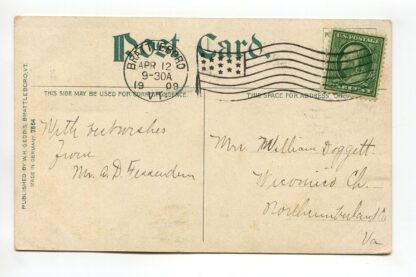 Post Card.
BRATTLEBORO
APR 12
9-30A
1909
VT.
U.S. POSTAGE
THIS SIDE MAY BE USED FOR CORRESPONDENCE
THIS SPACE FOR ADDRESS ONLY
PUBLISHED BY W.H. GEDDIS, BRATTLEBORO, VT.
MADE IN GERMANY. 7854
With best wishes
from
Mr. A. D. Fessenden
Mrs William Doggett
Wicomico Ch -
Northumberland Co
Va